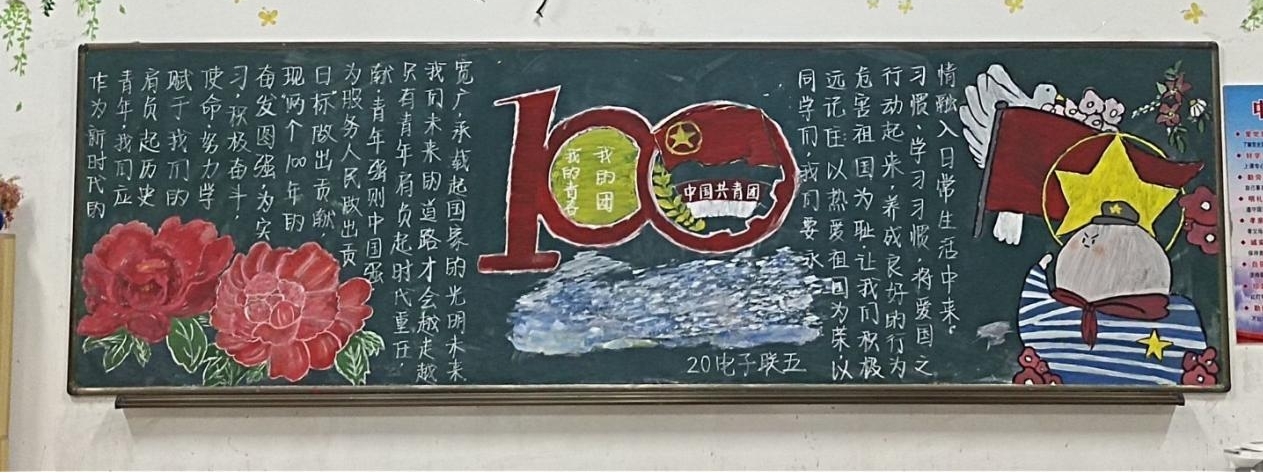 作为新时代的
青年,我们应
肩负起历史
赋于我们的
使命,努力学
习,积极奋斗,
奋发图强,为实
现"两个100年"的
目标做出贡献,
为服务人民做出贡
献,青年强则中国强
只有青年肩负起时代重任
我们未来的道路才会越走越
宽广,承载起国家的光明未来
100
我的青春
我的团
中国共青团
20电子联五
同学们,我们要永
远记住以热爱祖国为荣,以
危害祖国为耻,让我们积极
行动起来,养成良好的行为
习惯、学习习惯,将爱国之
情融入日常生活中来。